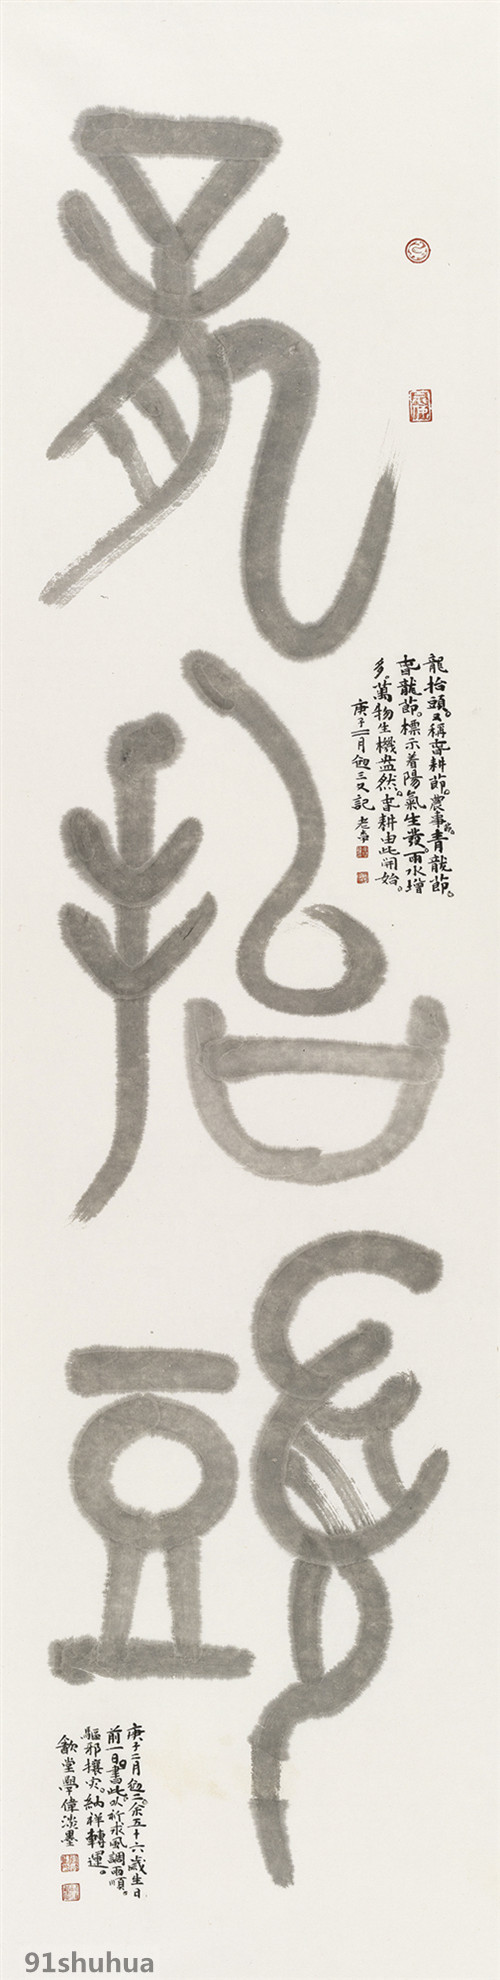 龍
抬
頭
龍抬頭。又稱春耕節。農事節。青龍節。
春龍節。標示着陽氣生發。雨水增
多。萬物生機盎然。春耕由此開始。
庚子二月初三又記
庚子二月初二余五十六歲生日
前一日書此以祈求風調雨順。
驅邪攘灾。納祥轉運。
歙堂學偉淡墨
91shuhua